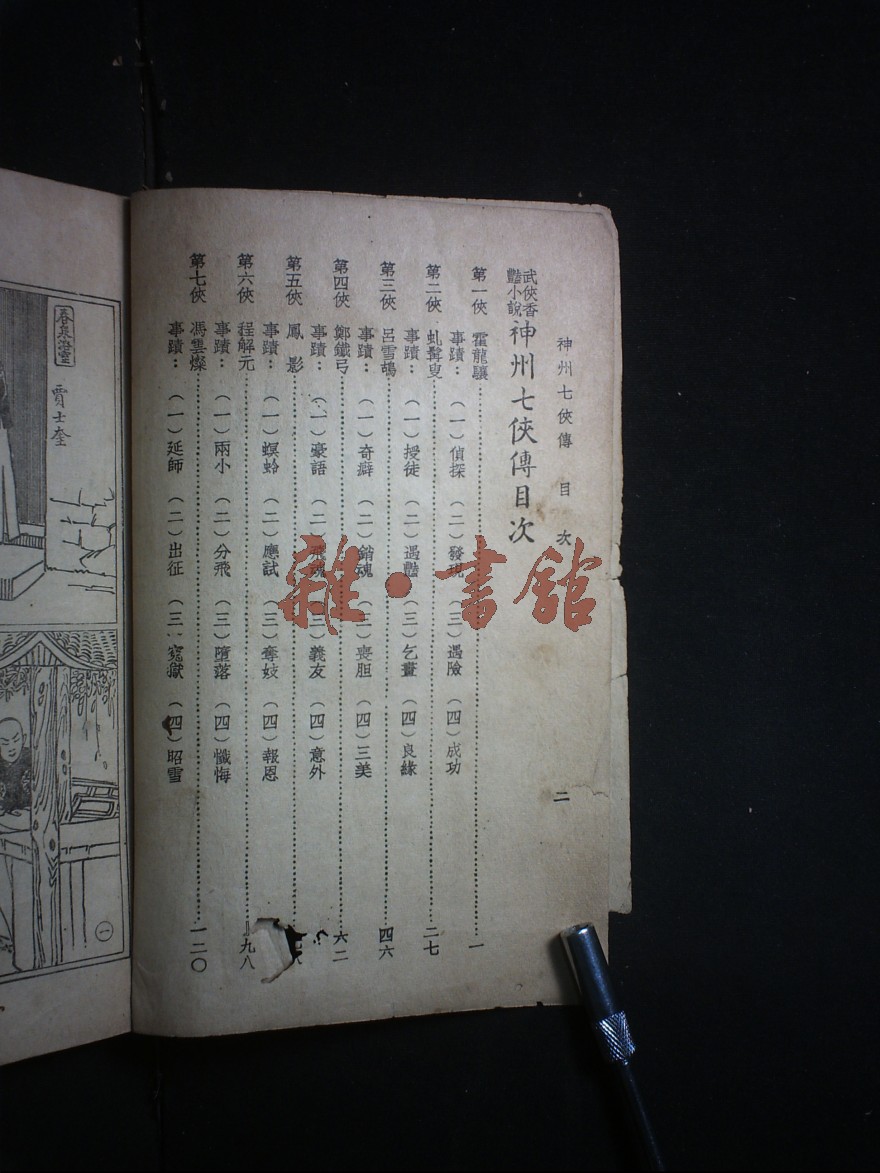 神州七俠傳　目　次　二
武俠香豔小說　神州七俠傳目次
第一俠　霍龍驤……一
事蹟：（一）偵探（二）發現（三）遇險（四）成功
第二俠　虬髯叟……二七
事蹟：（一）授徒（二）遇豔（三）乞畫（四）良緣
第三俠　呂雪鴣……四六
事蹟：（一）奇癖（二）銷魂（三）喪胆（四）三美
第四俠　鄭鐵弓……六二
事蹟：（一）豪語（二）飛魂（三）義友（四）意外
第五俠　鳳　影……八
事蹟：（一）螟蛉（二）應試（三）奪妓（四）報恩
第六俠　程解元……九八
事蹟：（一）兩小（二）分飛（三）墮落（四）懺悔
第七俠　馮雲燦……一二〇
事蹟：（一）延師（二）出征（三）冤獄（四）昭雪
雜·書館
春泉浴室
賈士奎
一